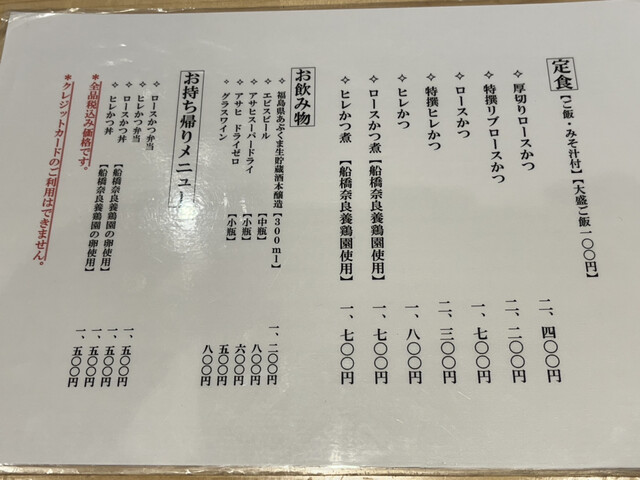 定食【ご飯・みそ汁付】【大盛ご飯一〇〇円】
✧ 厚切りロースかつ 二、四〇〇円
✧ 特撰リブロースかつ 二、二〇〇円
✧ ロースかつ 一、七〇〇円
✧ 特撰ヒレかつ 二、三〇〇円
✧ ヒレかつ 一、八〇〇円
✧ ロースかつ煮【船橋奈良養鶏園使用】 一、七〇〇円
✧ ヒレかつ煮【船橋奈良養鶏園使用】 一、七〇〇円
お飲み物
✧ 福島県あぶくま生貯蔵酒本醸造【300ml】 一、二〇〇円
✧ エビスビール【中瓶】 八〇〇円
✧ アサヒスーパードライ【小瓶】 六〇〇円
✧ アサヒ ドライゼロ【小瓶】 五〇〇円
✧ グラスワイン 八〇〇円
お持ち帰りメニュー
✧ ロースかつ弁当 一、五〇〇円
✧ ヒレかつ弁当 一、五〇〇円
✧ ロースかつ丼【船橋奈良養鶏園の卵使用】 一、五〇〇円
✧ ヒレかつ丼【船橋奈良養鶏園の卵使用】 一、五〇〇円
*全品税込み価格です。
*クレジットカードのご利用はできません。